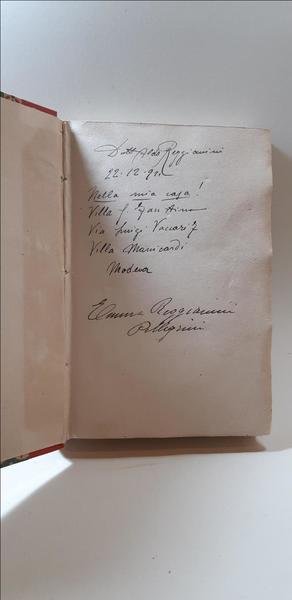 Dott. Aldo Reggianini
22.12.921
Nella mia casa!
Villa S.
Via Luigi Vaccari 7
Villa Manicardi
Modena
Emma Reggianini
Pellegrini